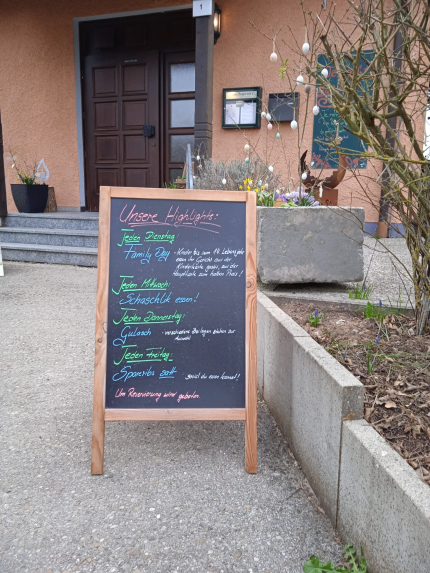 1
Unsere Highlights:
Jeden Dienstag
Family Day - Kinder bis zum 14. Lebensjahr
essen ihr Gericht aus der
Kinderkarte gratis, aus der
Hauptkarte zum halben Preis!
Jeden Mittwoch:
Schaschlik essen!
Jeden Donnerstag:
Gulasch - verschiedene Beilagen stehen zur
Auswahl
Jeden Freitag:
Spareribs satt - soviel du essen kannst!
Um Reservierung wird gebeten.